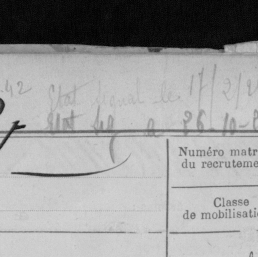 42
Etat signal. le 17/2/2
Etat sig a 26-10-
Numéro matr
du recruteme
Classe
de mobilisati